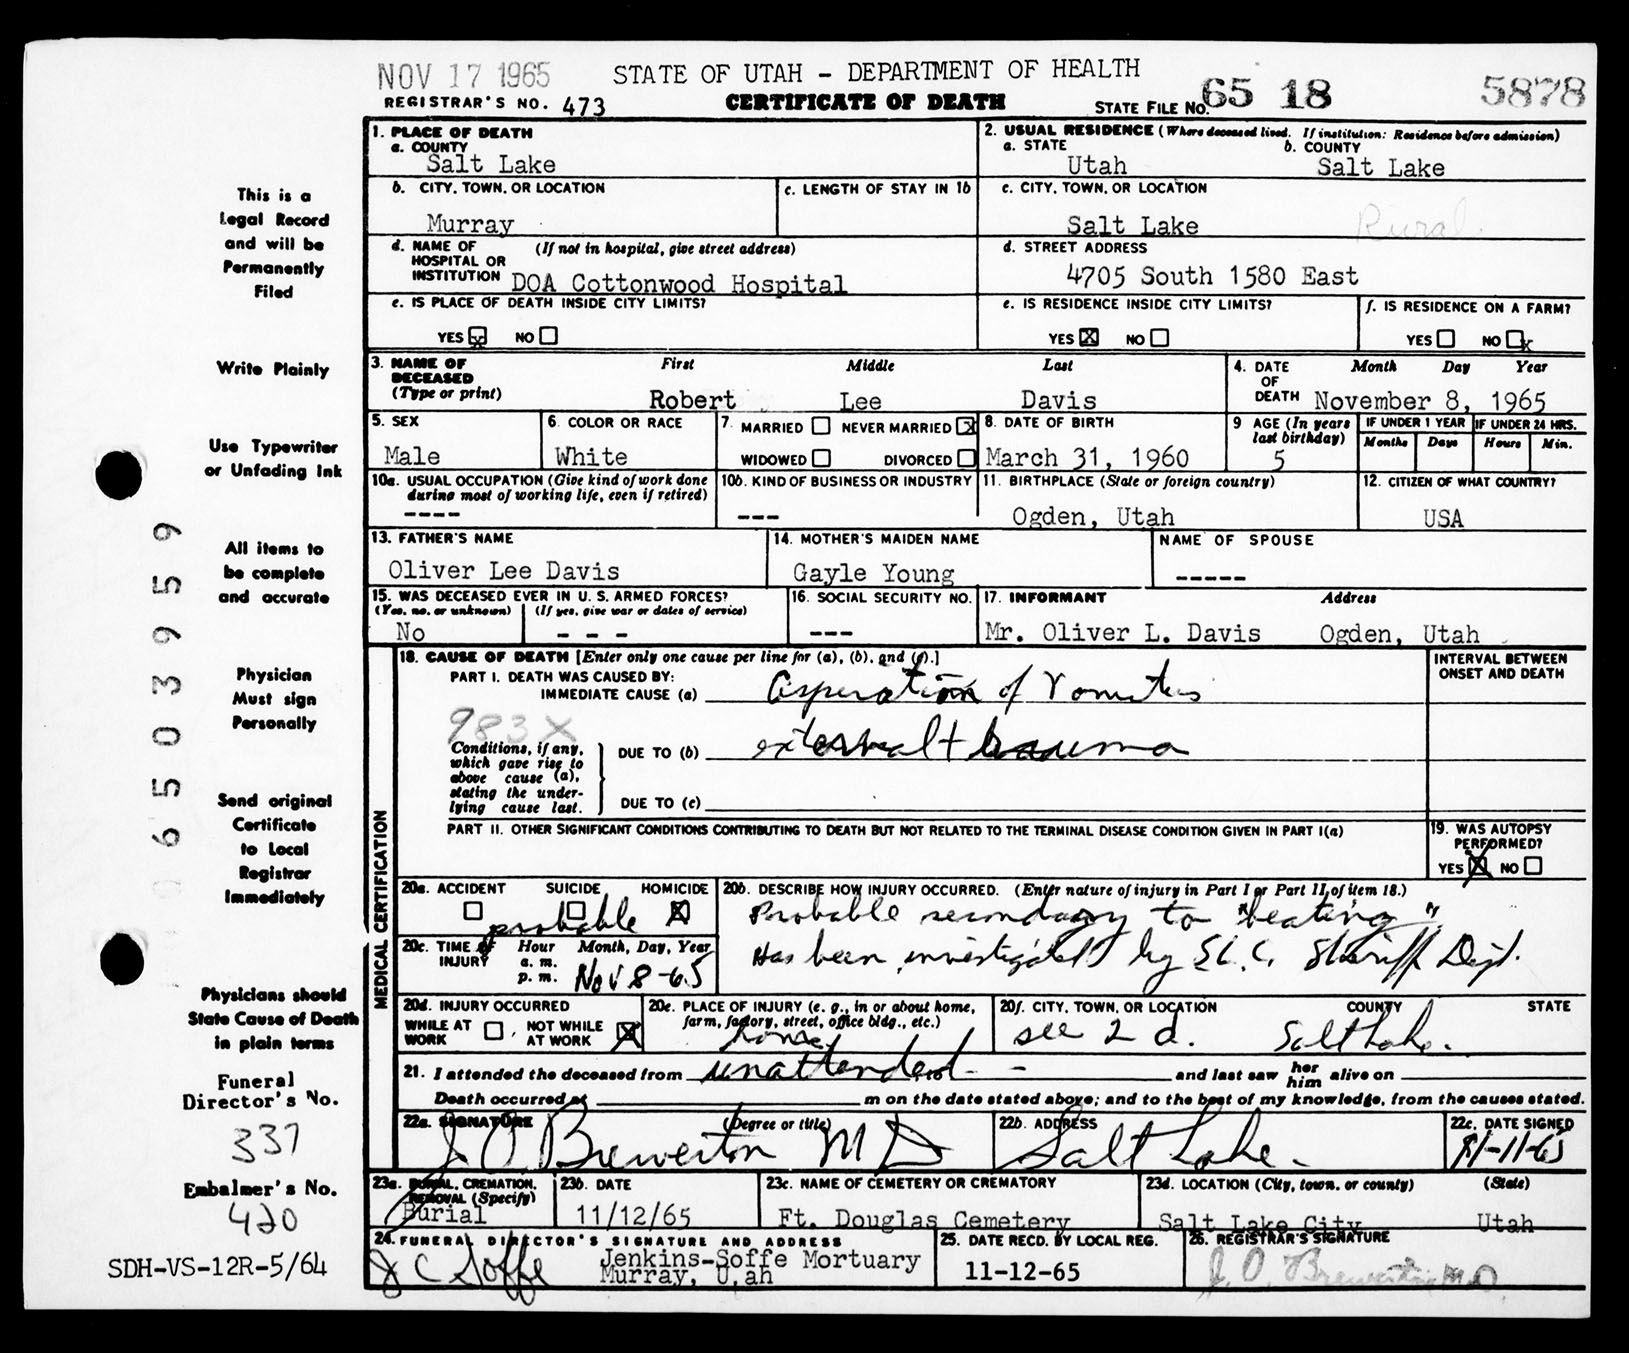 NOV 17 1965
STATE OF UTAH - DEPARTMENT OF HEALTH
REGISTRAR'S NO. 473
CERTIFICATE OF DEATH
STATE FILE NO. 65 18 5878
1. PLACE OF DEATH
a. COUNTY
Salt Lake
2. USUAL RESIDENCE (Where deceased lived. If institution: Residence before admission)
a. STATE
Utah
b. COUNTY
Salt Lake
b. CITY, TOWN, OR LOCATION
Murray
c. LENGTH OF STAY IN 1b
c. CITY, TOWN, OR LOCATION
Salt Lake
Rural.
d. NAME OF HOSPITAL OR INSTITUTION
(If not in hospital, give street address)
DOA Cottonwood Hospital
d. STREET ADDRESS
4705 South 1580 East
e. IS PLACE OF DEATH INSIDE CITY LIMITS?
YES X NO
e. IS RESIDENCE INSIDE CITY LIMITS?
YES X NO
f. IS RESIDENCE ON A FARM?
YES NO X
3. NAME OF DECEASED
(Type or print)
First Middle Last
Robert Lee Davis
4. DATE OF DEATH
Month Day Year
November 8, 1965
5. SEX
Male
6. COLOR OR RACE
White
7. MARRIED NEVER MARRIED X
WIDOWED DIVORCED
8. DATE OF BIRTH
March 31, 1960
9 AGE (In years last birthday)
5
IF UNDER 1 YEAR
Months Days
IF UNDER 24 HRS.
Hours Min.
10a. USUAL OCCUPATION (Give kind of work done during most of working life, even if retired)
----
10b. KIND OF BUSINESS OR INDUSTRY
---
11. BIRTHPLACE (State or foreign country)
Ogden, Utah
12. CITIZEN OF WHAT COUNTRY?
USA
13. FATHER'S NAME
Oliver Lee Davis
14. MOTHER'S MAIDEN NAME
Gayle Young
NAME OF SPOUSE
-----
15. WAS DECEASED EVER IN U. S. ARMED FORCES?
(Yes, no, or unknown) (If yes, give war or dates of service)
No - - -
16. SOCIAL SECURITY NO.
---
17. INFORMANT Address
Mr. Oliver L. Davis Ogden, Utah
MEDICAL CERTIFICATION
18. CAUSE OF DEATH [Enter only one cause per line for (a), (b), and (c).]
INTERVAL BETWEEN ONSET AND DEATH
PART I. DEATH WAS CAUSED BY:
IMMEDIATE CAUSE (a) Asperation of Vomitus
983X
Conditions, if any, which gave rise to above cause (a), stating the underlying cause last.
DUE TO (b) external trauma
DUE TO (c)
PART II. OTHER SIGNIFICANT CONDITIONS CONTRIBUTING TO DEATH BUT NOT RELATED TO THE TERMINAL DISEASE CONDITION GIVEN IN PART I(a)
19. WAS AUTOPSY PERFORMED?
YES X NO
20a. ACCIDENT SUICIDE HOMICIDE
probable X
20b. DESCRIBE HOW INJURY OCCURRED. (Enter nature of injury in Part I or Part II of item 18.)
Probable secondary to "beating"
Has been investigated by S.L.C. Sheriff Dept.
20c. TIME OF INJURY
Hour Month, Day, Year
a. m.
p. m.
Nov 8-65
20d. INJURY OCCURRED
WHILE AT WORK NOT WHILE AT WORK X
20e. PLACE OF INJURY (e. g., in or about home, farm, factory, street, office bldg., etc.)
home
20f. CITY, TOWN, OR LOCATION COUNTY STATE
see 2 d. Salt Lake.
21. I attended the deceased from unattended - - and last saw her him alive on
Death occurred at m on the date stated above; and to the best of my knowledge, from the causes stated.
22a. SIGNATURE (Degree or title)
J. O. Brewerton MD
22b. ADDRESS
Salt Lake -
22c. DATE SIGNED
11-11-65
23a. BURIAL, CREMATION, REMOVAL (Specify)
Burial
23b. DATE
11/12/65
23c. NAME OF CEMETERY OR CREMATORY
Ft. Douglas Cemetery
23d. LOCATION (City, town, or county) (State)
Salt Lake City Utah
24. FUNERAL DIRECTOR'S SIGNATURE AND ADDRESS
J C Soffe
Jenkins-Soffe Mortuary
Murray, Utah
25. DATE RECD. BY LOCAL REG.
11-12-65
26. REGISTRAR'S SIGNATURE
J. O. Brewerton M.D.
This is a
Legal Record
and will be
Permanently
Filed
Write Plainly
Use Typewriter
or Unfading Ink
All items to
be complete
and accurate
Physician
Must sign
Personally
Send original
Certificate
to Local
Registrar
Immediately
Physicians should
State Cause of Death
in plain terms
Funeral
Director's No.
337
Embalmer's No.
420
SDH-VS-12R-5/64
0 6 5 0 3 9 5 9